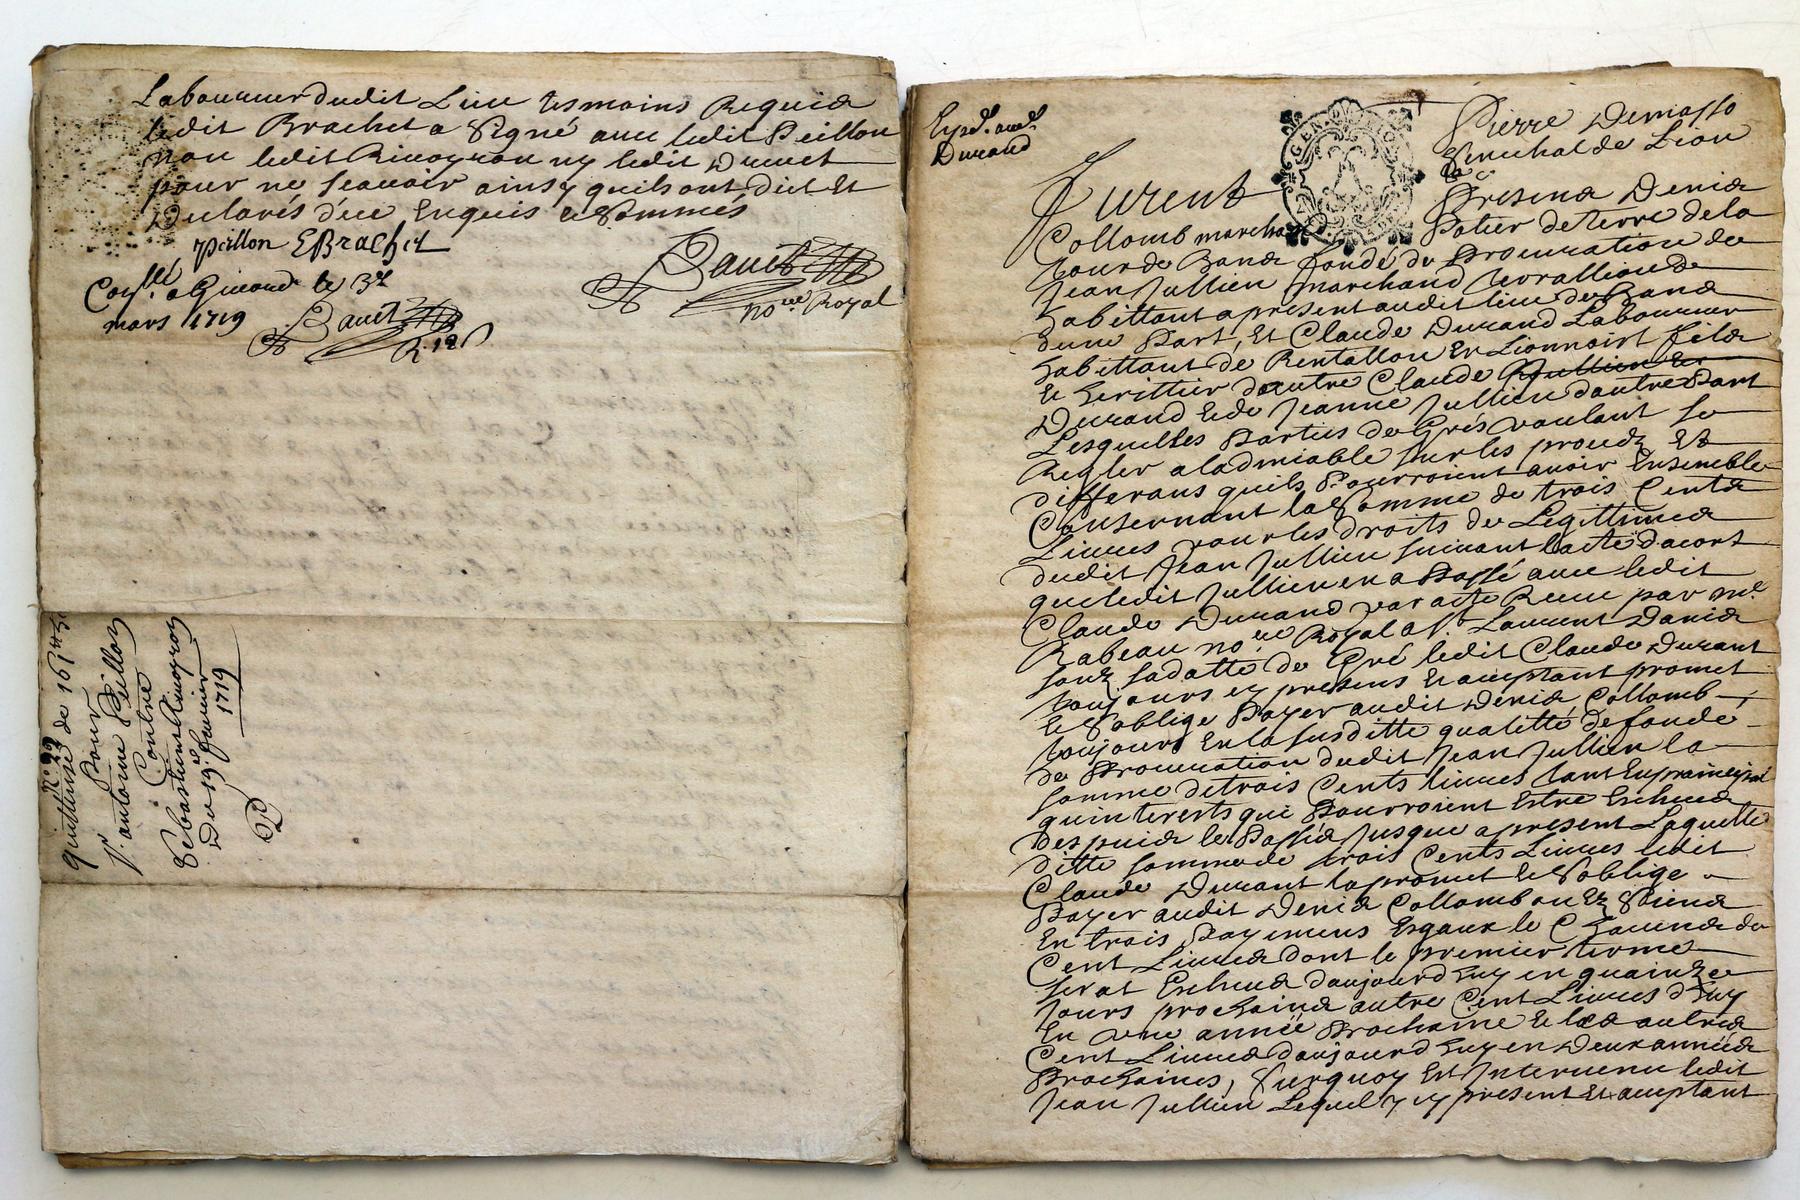 Laboureur dudit Lieu tesmoins Requis
ledit Brachet a Signé avec ledit Peillon
non ledit Rivoyron ny ledit Duvet
pour ne scavoir ainsy quils ont dict Et
Declarés d'ece Enquis & Sommés
peillon EBrachet
Banet
no.re Royal
Con.llé a Girand le 3e
mars 1719
Banet
R. 12s
n.° 22
quittense de 161tt 5s
pour
S.r antoine Peillon
Contre
Sebastien Rivoyron
Du 19.e fevrier
1719
Exped. aud.
Durand
GEN. DE LION
Pierre Demasso
Senechal de Lion
la
Furent Presens Denis
Collomb marchand Potier de terre de la
tour de Bans fondé de Procuration de
Jean Jullien marchand terrallion
habittant apresent audit lieu de Bans
dune Part, Et Claude Durand Labourier
habittant de Rentallon En Lionnoist fils
Et herittier dautre Claude Jullien Et
Durand Et de Jeanne Jullien dautre Part
Lesquelles Parties de Grés voulant se
Regler a ladmiable sur les procedz Et
differans quils Pourroient avoir Ensemble
Consernant la Somme de trois Cents
Livres pour les droits de Legittimes
dudit Jean Jullien suivant lacte dacort
que ledit Jullien en a Passé avec ledit
Claude Durand par acte Receu par m.e
Rabeau no.re Royal a S.t Laurent Danis
souz sa datte de Gré ledit Claude Durant
toujours icy presens Et aceptant promet
Et Soblige Payer audit Denis Collomb
toujours En la susditte qualitté de fondé
de Procuration dudit Jean Jullien la
somme de trois Cents livres tant En prainsipal
quinterests qui Pourroient Estre Escheus
Despuis le Passés Jusque apresent Laquelle
ditte somme de trois Cents Livres ledit
Claude Durant la promet Et Soblige
Payer audit Denis Collomb ou Ez Siens
En trois Payemens Esgaux le Chacuns de
Cent Livres dont le premier terme
serat Escheus daujourdhuy en quainze
Jours prochains autre Cent Livres dhuy
En une année Prochaine Et les autres
Cent Livres daujourdhuy en Deux années
Prochaines, Surquoy Est Intervenu ledit
Jean Jullien Lequel y icy present Et aceptant